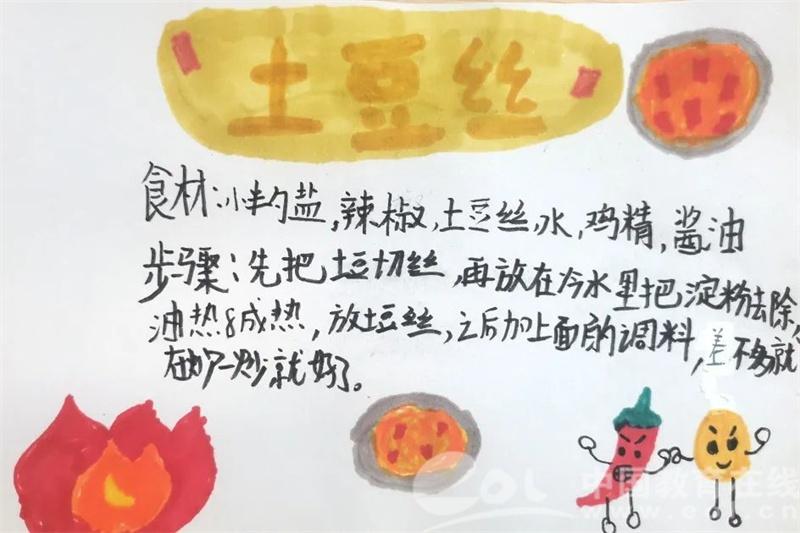 土豆丝
食材:小半勺盐,辣椒,土豆丝,水,鸡精,酱油
步骤:先把土豆切丝,再放在冷水里把淀粉去除,
油热8成热,放土豆丝,之后加上面的调料,差不多就
炒一炒就好了。
eol 中国教育在线
www.eol.cn